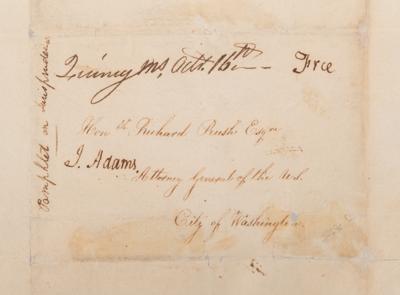 Quincy Ms, Oct. 16th
Free
Honble Richard Rush Esqr
J. Adams
Attorney General of the U.S.
City of Washington
Pamphlet on Jurisprudence